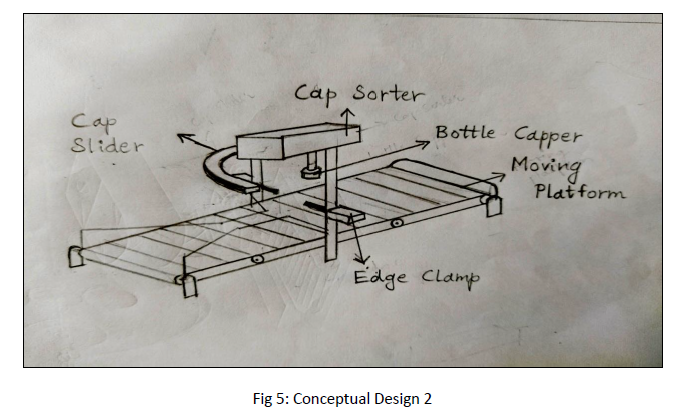 Cap Sorter
Cap
Slider
Bottle Capper
Moving
Platform
Edge Clamp
Fig 5: Conceptual Design 2